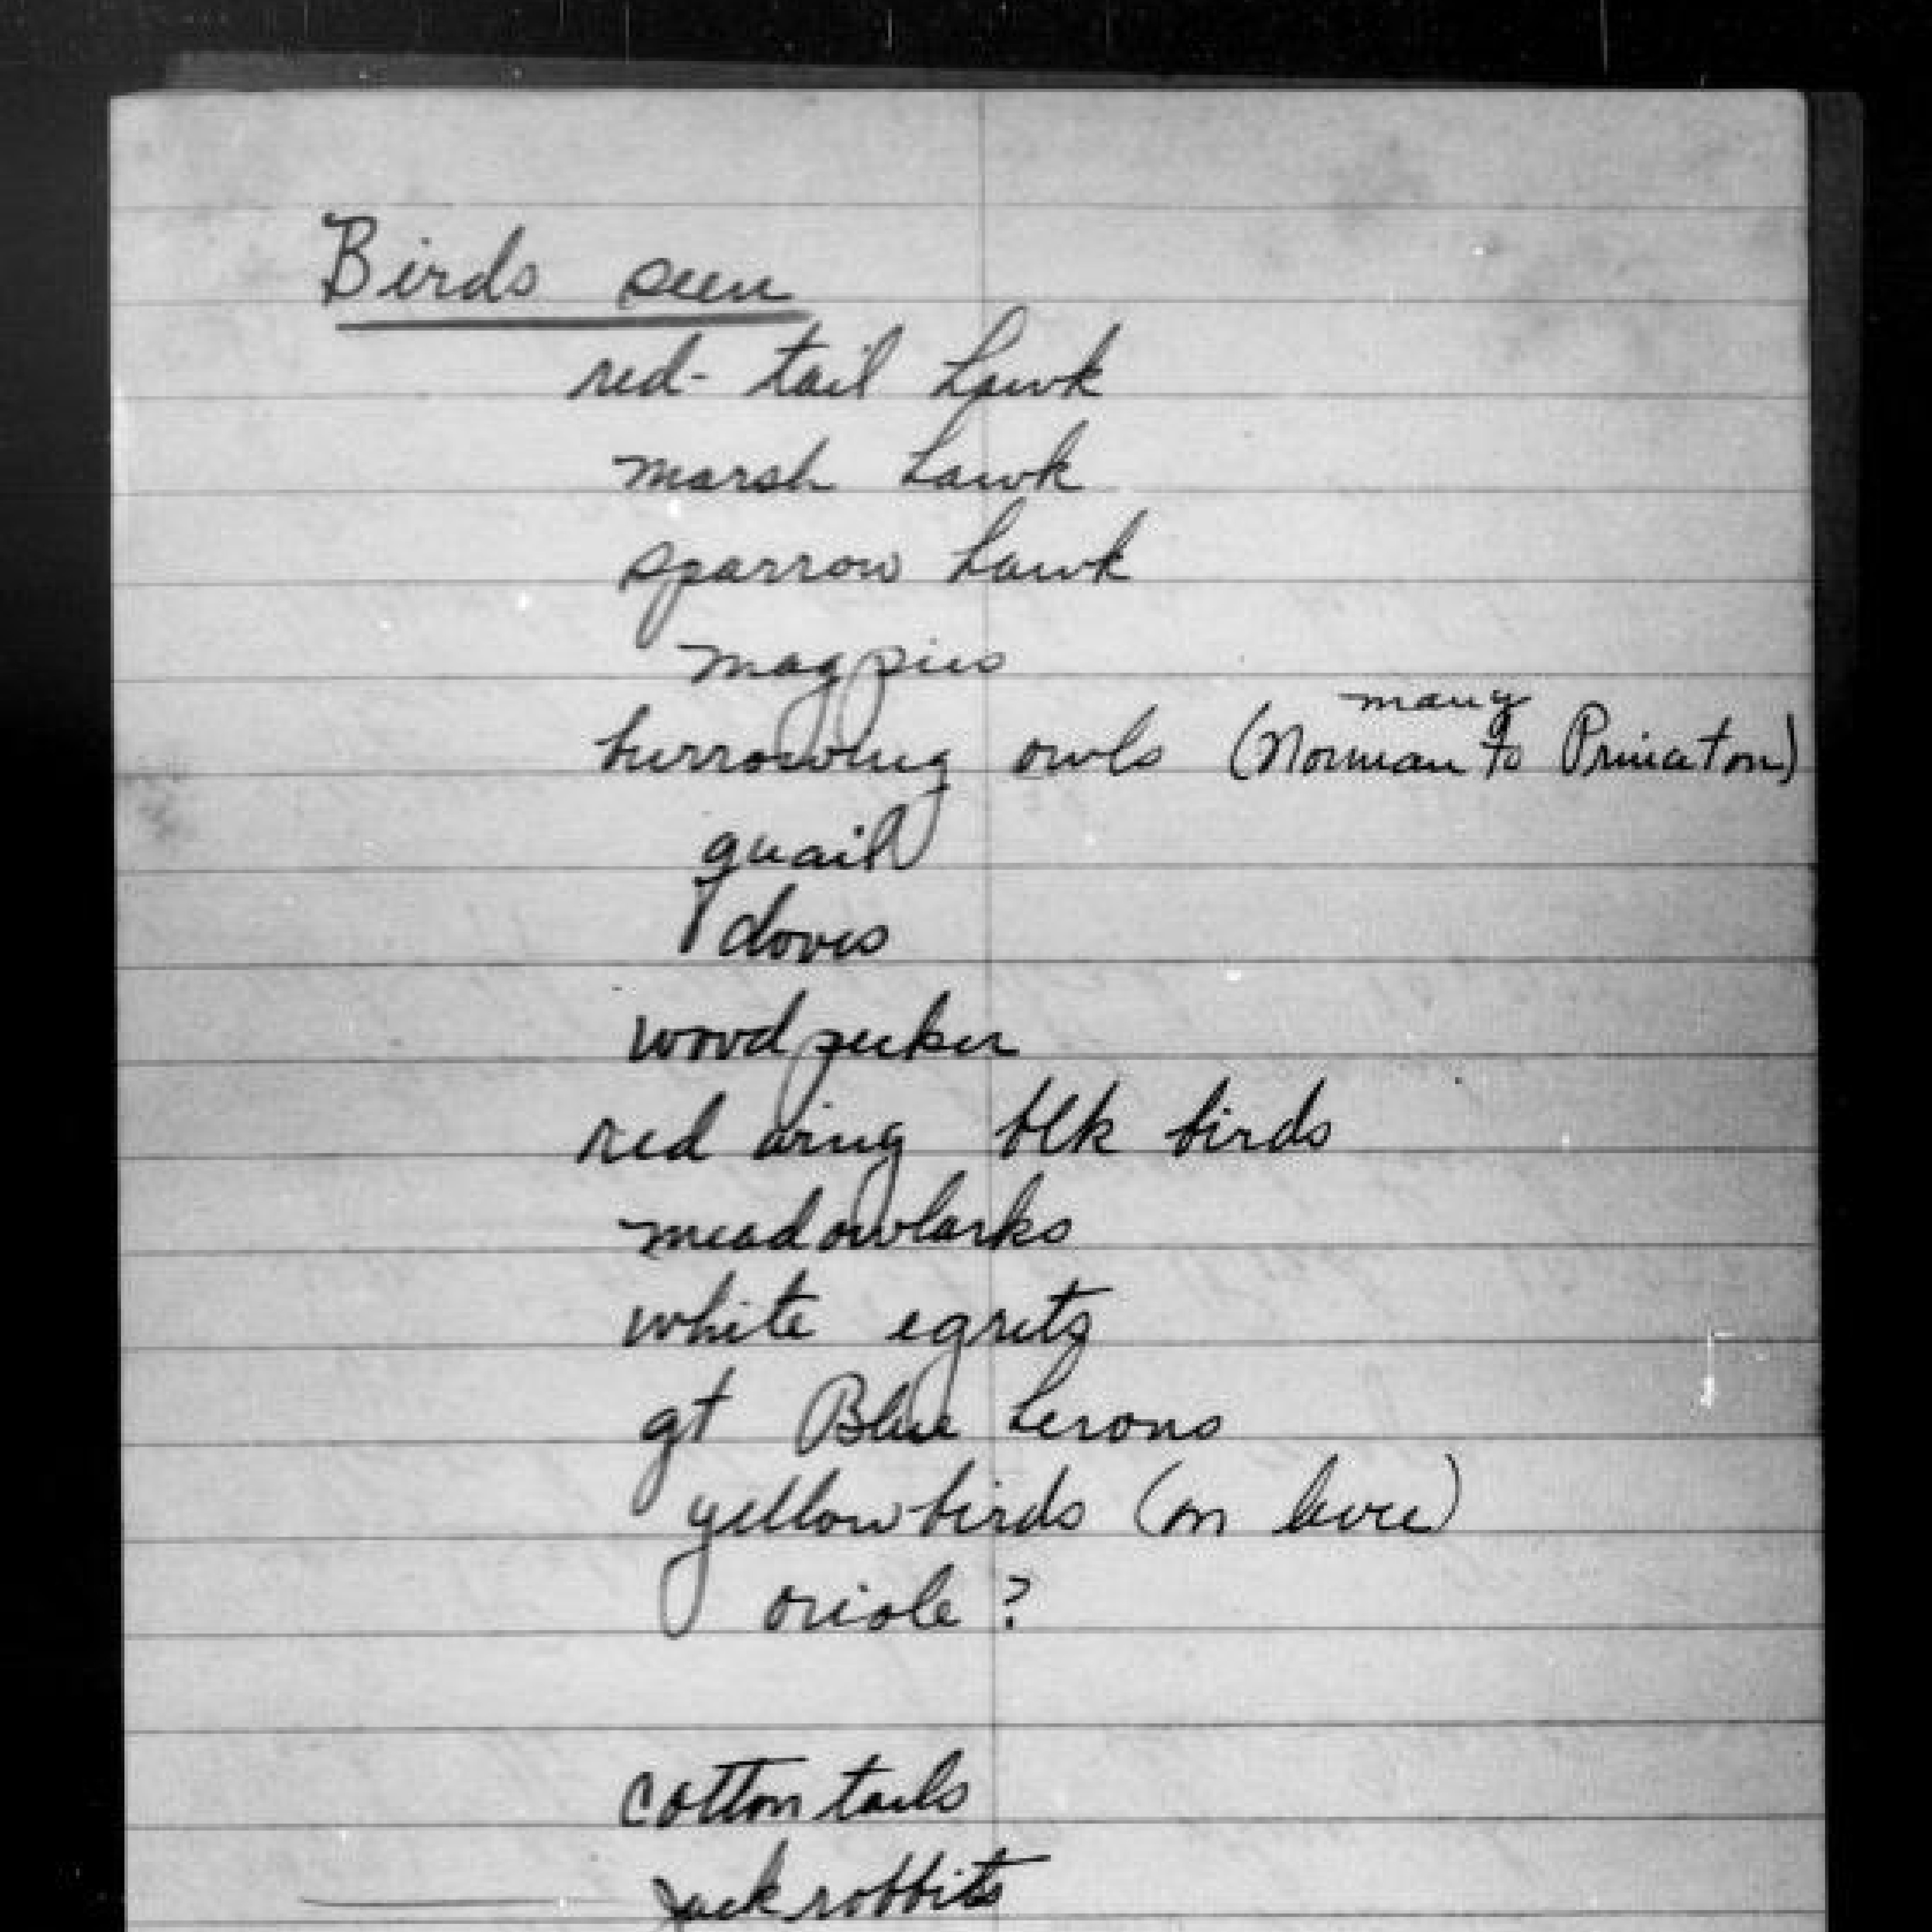 Birds seen
red-tail hawk
marsh hawk
sparrow hawk
magpies
many
burrowing owls (Norman to Princeton)
quail
doves
woodpecker
red wing blk birds
meadowlarks
white egrets
gt Blue herons
yellow birds (on levee)
oriole?
cotton tails
jack rabbits